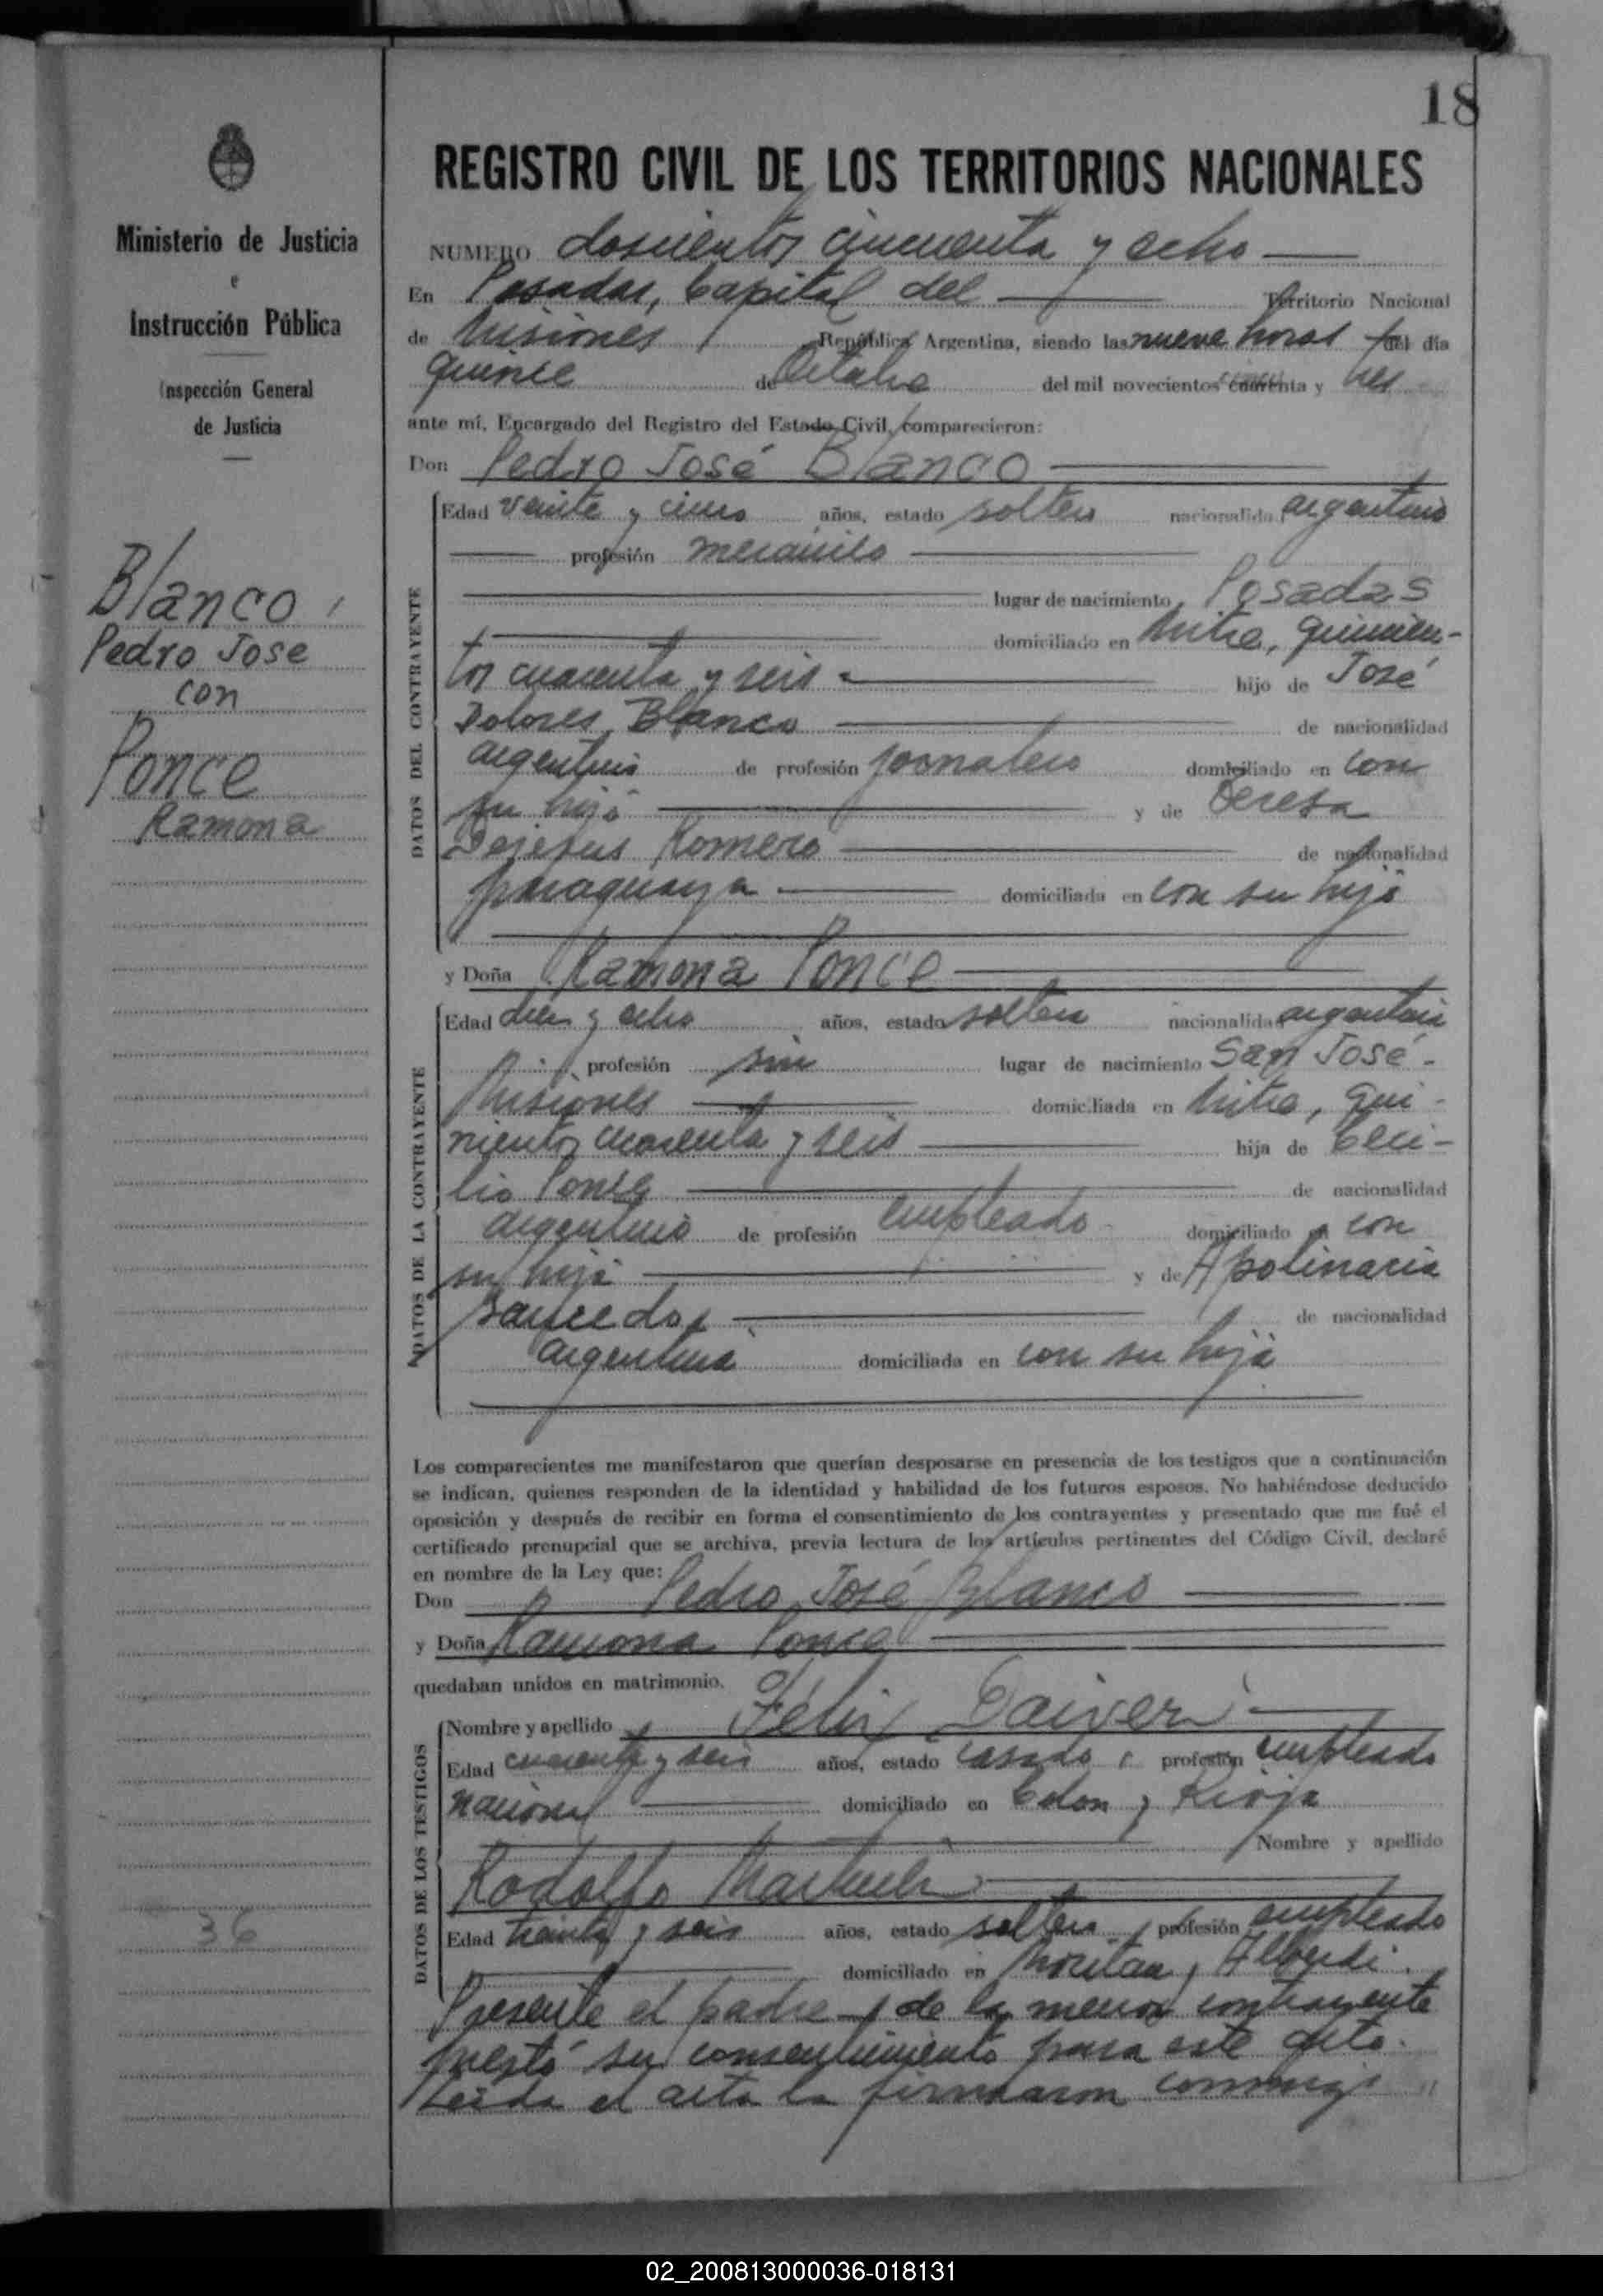 18
REGISTRO CIVIL DE LOS TERRITORIOS NACIONALES
Ministerio de Justicia
e
Instrucción Pública
Inspección General
de Justicia
Blanco
Pedro Jose
con
Ponce
Ramona
36
NUMERO doscientos cincuenta y ocho
En Posadas, Capital del Territorio Nacional
de Misiones República Argentina, siendo las nueve horas del día
quince de Octubre del mil novecientos y tres
ante mí, Encargado del Registro del Estado Civil, comparecieron:
Don Pedro José Blanco
DATOS DEL CONTRAYENTE
Edad veinte y cinco años, estado soltero nacionalidad argentino
profesión mecánico
lugar de nacimiento Posadas
domiciliado en Mitre, quinien-
tos cuarenta y seis hijo de José
Dolores Blanco de nacionalidad
argentino de profesión jornalero domiciliado en con
su hijo y de Teresa
Dejesus Romero de nacionalidad
paraguaya domiciliada en con su hijo
y Doña Ramona Ponce
DATOS DE LA CONTRAYENTE
Edad diez y ocho años, estado soltera nacionalidad argentina
profesión sin lugar de nacimiento San José -
Misiones domiciliada en Mitre, qui-
nientos cuarenta y seis hija de Ceci-
lio Ponce de nacionalidad
argentino de profesión empleado domiciliado en con
su hija y de Apolinaria
de nacionalidad
argentina domiciliada en con su hija
Los comparecientes me manifestaron que querían desposarse en presencia de los testigos que a continuación
se indican, quienes responden de la identidad y habilidad de los futuros esposos. No habiéndose deducido
oposición y después de recibir en forma el consentimiento de los contrayentes y presentado que me fué el
certificado prenupcial que se archiva, previa lectura de los artículos pertinentes del Código Civil, declaré
en nombre de la Ley que:
Don Pedro José Blanco
y Doña Ramona Ponce
quedaban unidos en matrimonio.
DATOS DE LOS TESTIGOS
Nombre y apellido Félix
Edad cuarenta y seis años, estado casado, profesión empleado
nacional domiciliado en Colon y Rioja
Nombre y apellido
Rodolfo
Edad treinta y seis años, estado soltero, profesión empleado
domiciliado en y Alberdi.
Presente el padre de la menor contrayente
prestó su consentimiento para este acto.
Leída el acta la firmaron conmigo
02_200813000036-018131